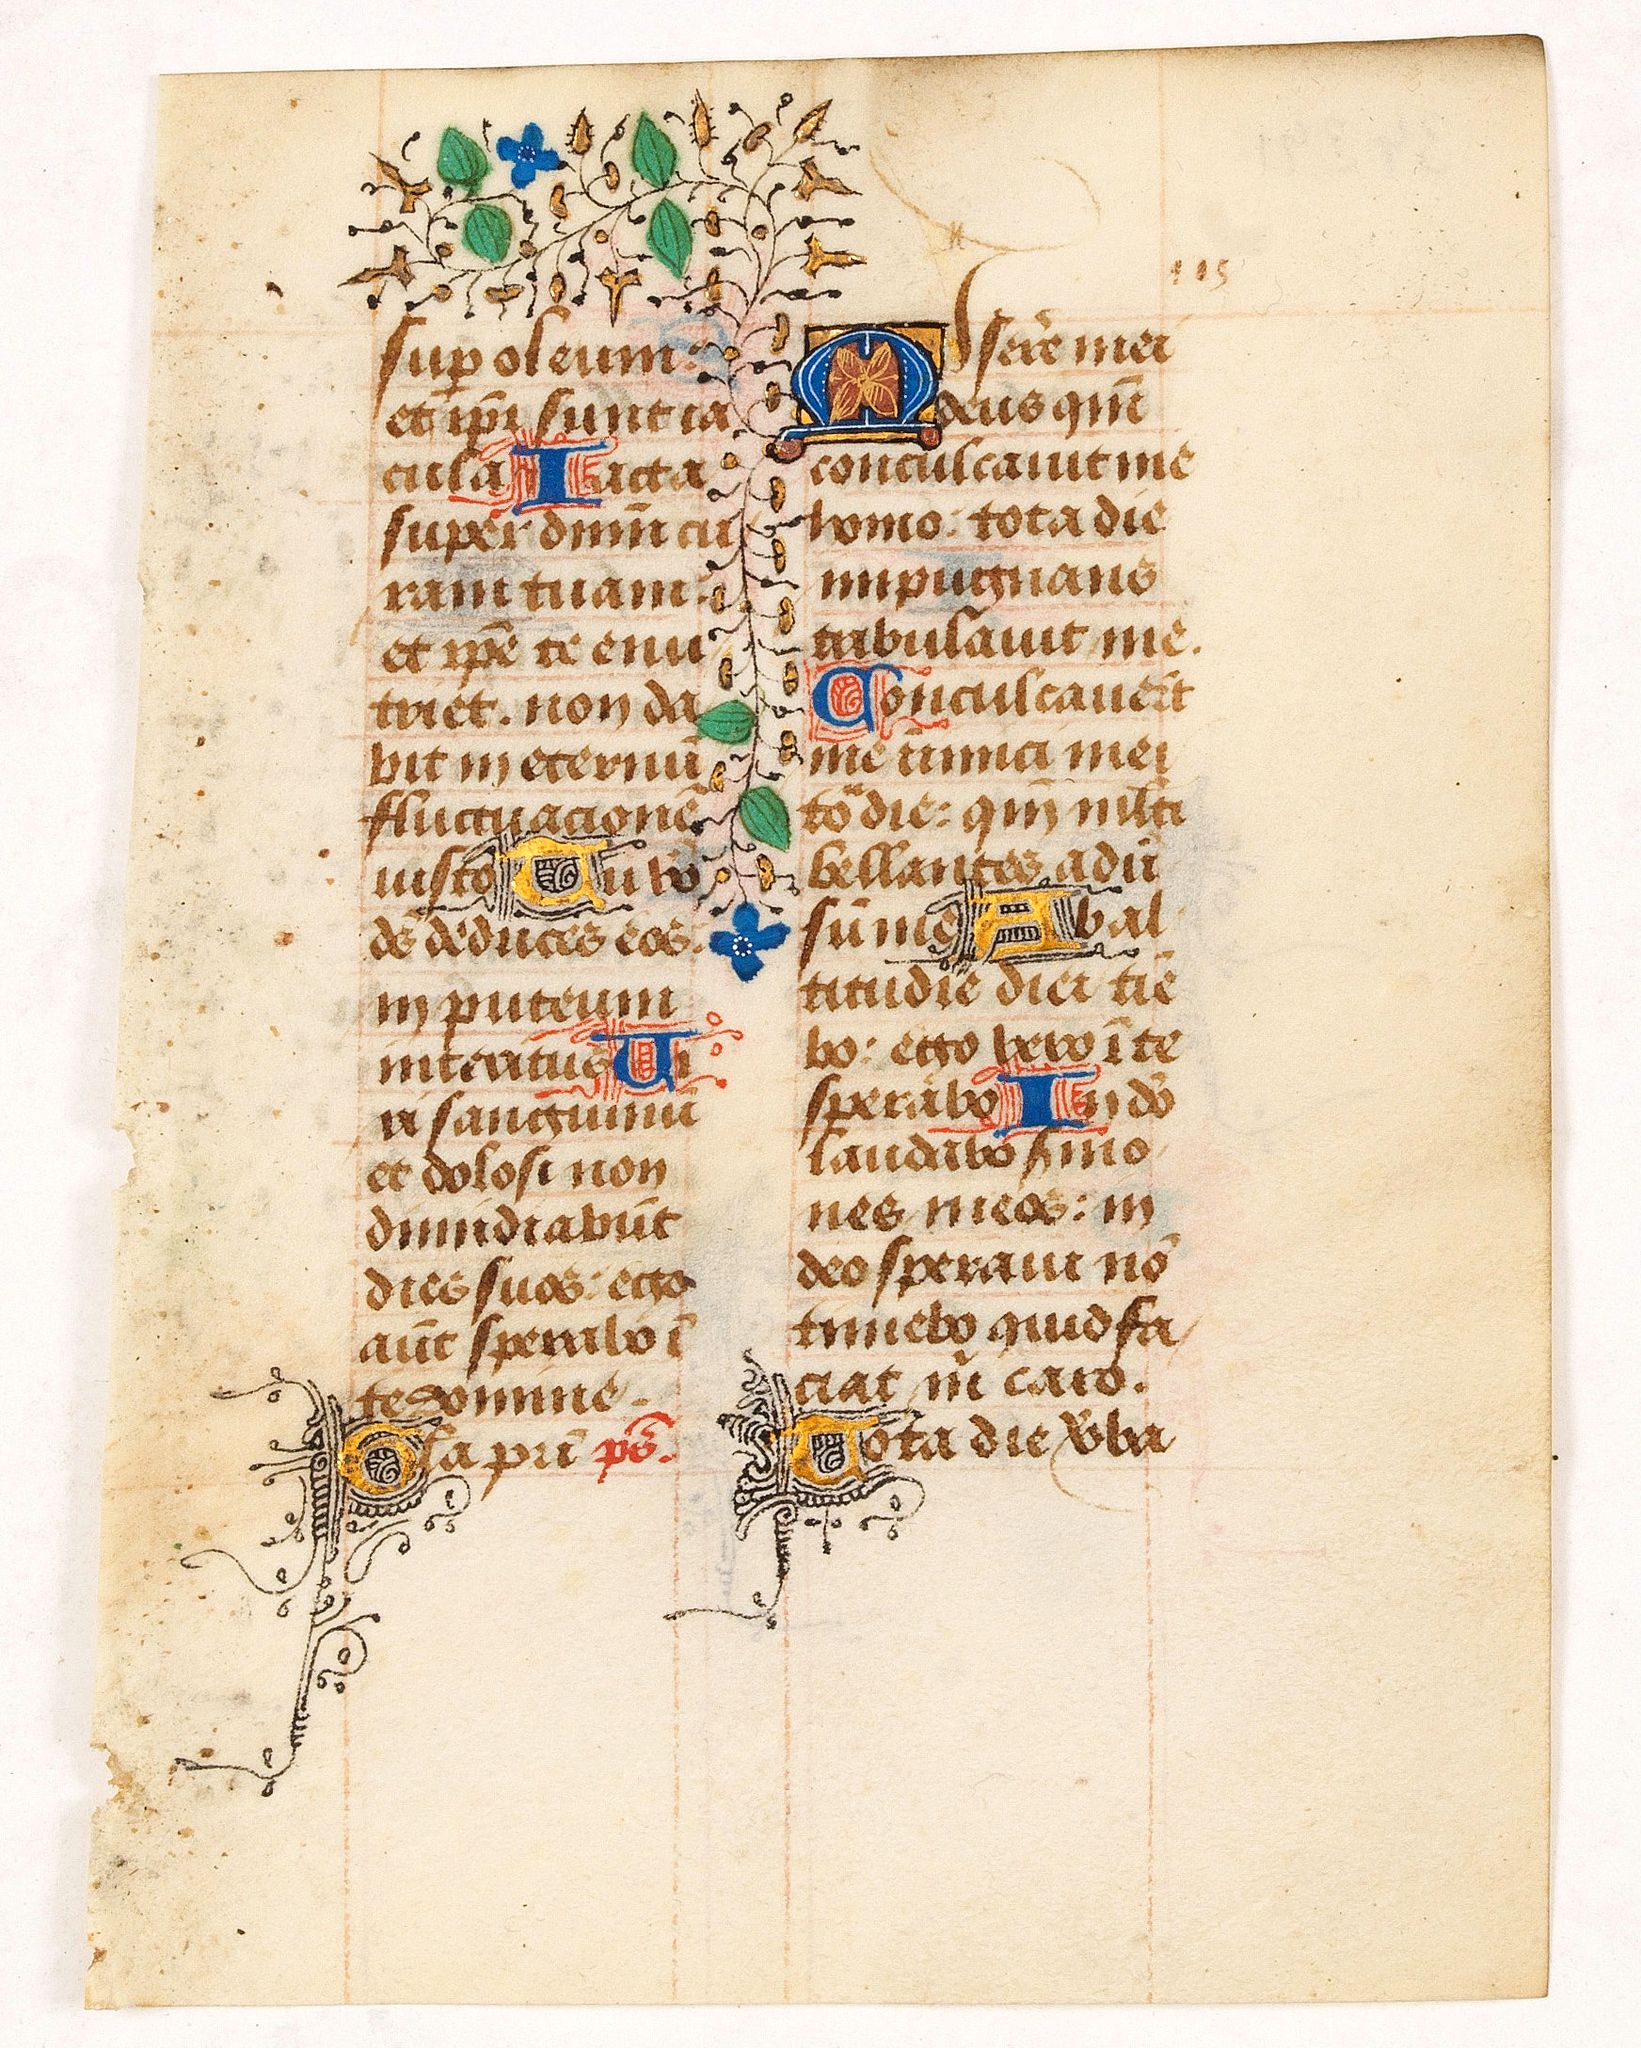 sup oleum:
et ip̄i sunt ia
cula Iacta
super dn̄m cu
ram tuam:
et ip̄e te enu
triet. non da
bit in eternū
fluctuacionē
iusto Tu v̊o
ds̄ deduces eos.
in puteum
interitus Vi
ri sanguinū
et dolosi non
dimidiabūt
dies suos: ego
aūt sperabo ī
te domine.
Gl̄a pr̄i ps̄.
115
Misere̅ mei
deus qm̄
conculcauit me
homo: tota die
impugnans
tribulauit me.
Conculcauer̄t
me inimici mei
tōdie: qm̄ ml̄ti
bellantes adū
sū me Ab al
titudīe diei tīe
bo: ego vero ī te
sperabo In dō
laudabo s̄mo
nes meos: in
deo speraui nō
timebo quid fa
ciat m̄ caro.
Tota die v̄ba